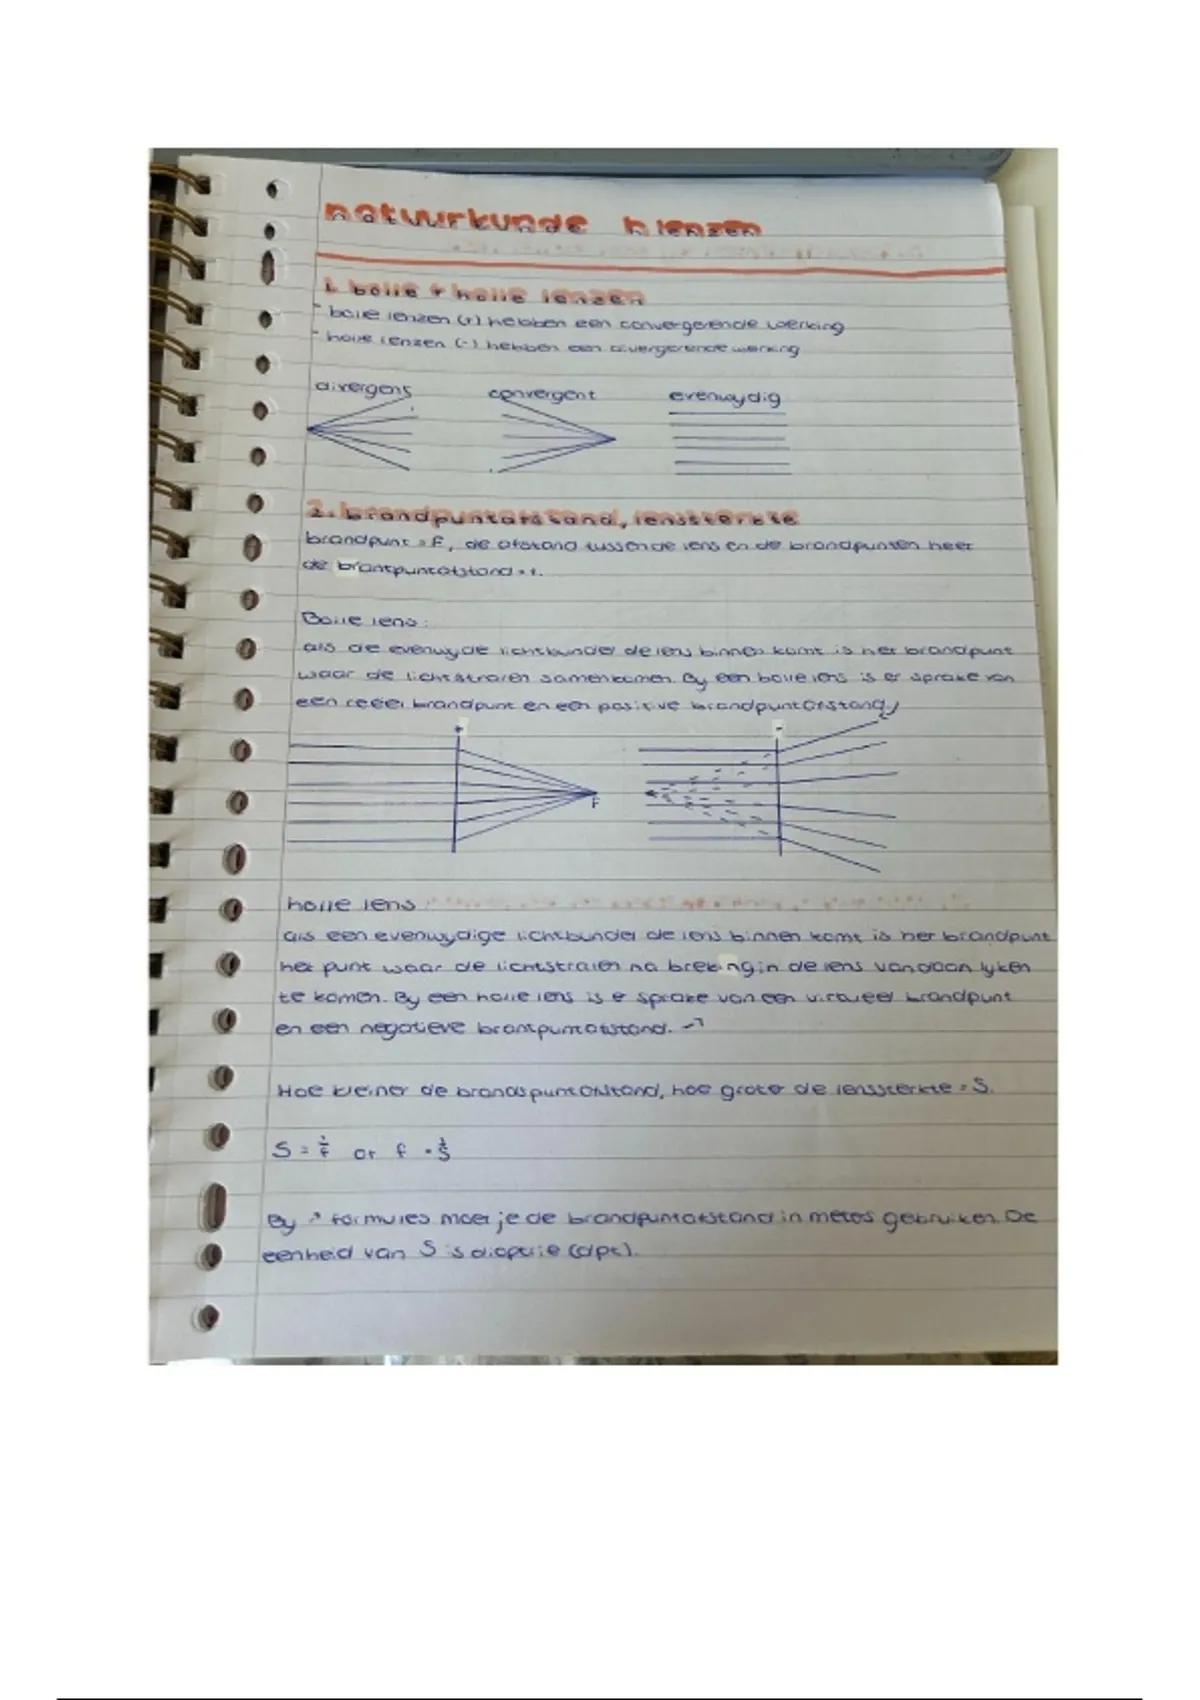 natuurkunde h lenzen
1. bolle + holle lenzen
- bolle lenzen (+) hebben een convergerende werking
- holle lenzen (-) hebben een divergerende werking
divergent convergent evenwydig
2. brandpuntafstand, lenssterkte
brandpunt = F, de afstand tussen de lens en de brandpunten heet
de brantpuntafstand = f.
Bolle lens:
als de evenwyde lichtbundel de lens binnen komt is het brandpunt
waar de lichtstralen samenkomen. By een bolle lens is er sprake van
een reëel brandpunt en een positive brandpuntafstand
+ -
F
holle lens
als een evenwydige lichtbundel de lens binnen komt is het brandpunt
het punt waar de lichtstralen na breking in de lens vandaan lyken
te komen. By een holle lens is er sprake van een virtueel brandpunt
en een negatieve brantpuntafstand. →
Hoe kleiner de brandspuntafstand, hoe groter de lenssterkte = S.
S = 1/f of f = 1/S
By ↗ formules moet je de brandpuntafstand in meters gebruiken. De
eenheid van S is dioptrie (dpt).